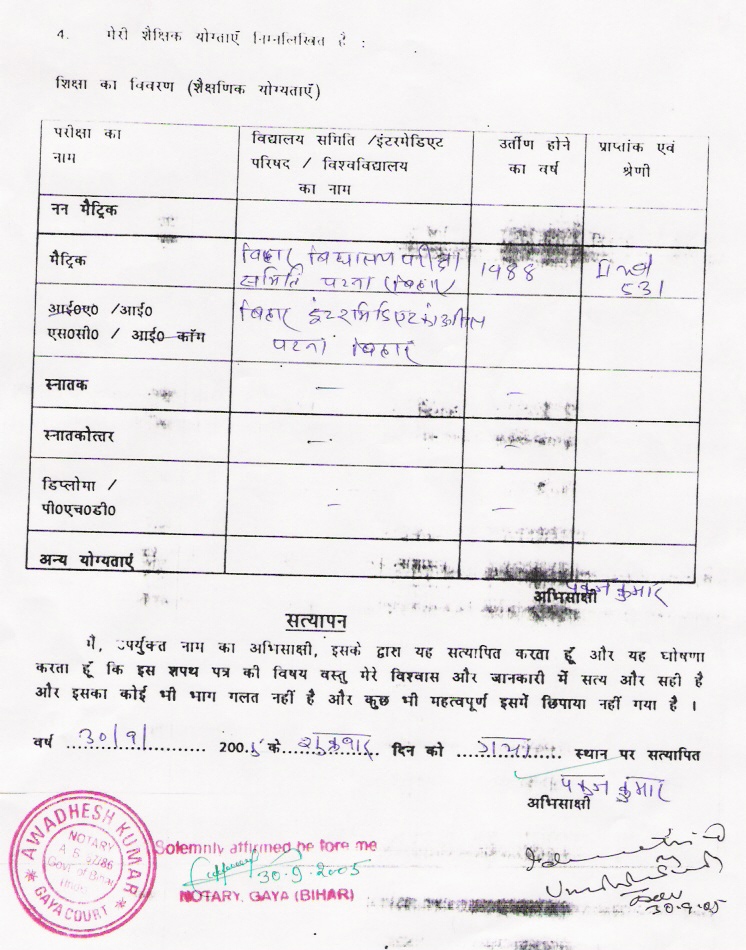 4. मेरी शैक्षिक योग्ताएँ निम्नलिखित है :
शिक्षा का विवरण (शैक्षणिक योग्यताएँ)
परीक्षा का नाम
विद्यालय समिति /इंटरमेडिएट परिषद / विश्वविद्यालय का नाम
उर्तीण होने का वर्ष
प्राप्तांक एवं श्रेणी
नन मैट्रिक
मैट्रिक
बिहार विद्यालय परीक्षा
समिति पटना (बिहार)
1988
531
आई0ए0 /आई0
एस0सी0 / आई0 कॉम
बिहार इंटरमिडिएट काउंसिल
पटना बिहार
स्नातक —  —
स्नातकोत्तर —
डिप्लोमा /
पी0एच0डी0 —  —
अन्य योग्यताएँ
पंकज कुमार
अभिसाक्षी
सत्यापन
मैं, उपर्युक्त नाम का अभिसाक्षी, इसके द्वारा यह सत्यापित करता हूँ और यह घोषणा
करता हूँ कि इस शपथ पत्र की विषय वस्तु मेरे विश्वास और जानकारी में सत्य और सही है
और इसका कोई भी भाग गलत नहीं है और कुछ भी महत्वपूर्ण इसमें छिपाया नहीं गया है ।
वर्ष 30/9/ 2005 के शुक्रवार दिन को गया स्थान पर सत्यापित
पंकज कुमार
अभिसाक्षी
AWADHESH KUMAR
NOTARY
Govt. of Bihar
GAYA COURT
Solemnly affirmed be fore me
30.9.2005
NOTARY, GAYA (BIHAR)
30.9.05